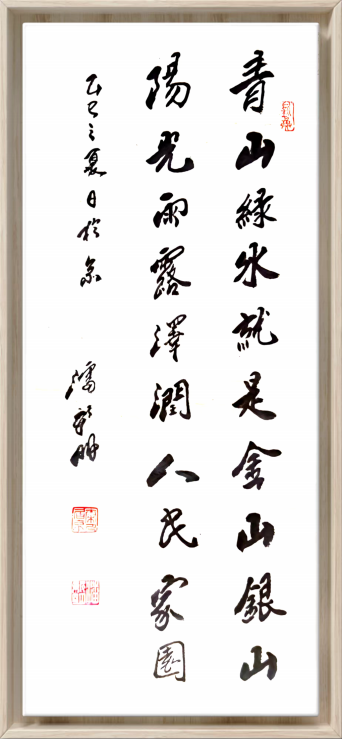 青山緑水就是金山銀山
陽光雨露澤潤人民家園
乙巳之夏日於京
潘